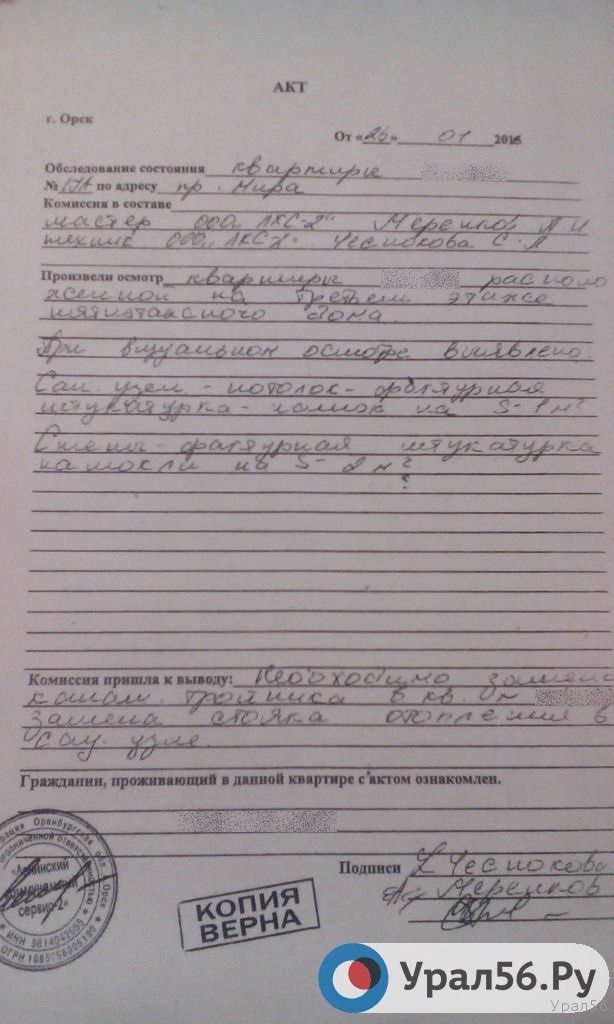 АКТ
г. Орск
От «26» 01 2015
Обследование состояния квартиры
№ по адресу пр. Мира
Комиссия в составе
мастер ООО "ЛКС-2" Меренков А.И
техник ООО "ЛКС-2" Чеснокова С.Л
Произвели осмотр квартиры располо
женной на третьем этаже
пятиэтажного дома
При визуальном осмотре выявлено:
Сан. узел - потолок - фактурная
штукатурка - намок на S-1 м²
Стены - фактурная штукатурка
намокли на S- 2 м²
Комиссия пришла к выводу: Необходимо замена
канализ. тройника в кв. №
замена стояка отопления в
сан. узле.
Гражданин, проживающий в данной квартире с актом ознакомлен.
Подписи Чеснокова
Меренков
КОПИЯ
ВЕРНА
Оренбургская обл. г. Орск
ограниченной ответственностью
«Ленинский
коммунальный
сервис-2»
ИНН 5614042955
Урал56.Ру
Урал56